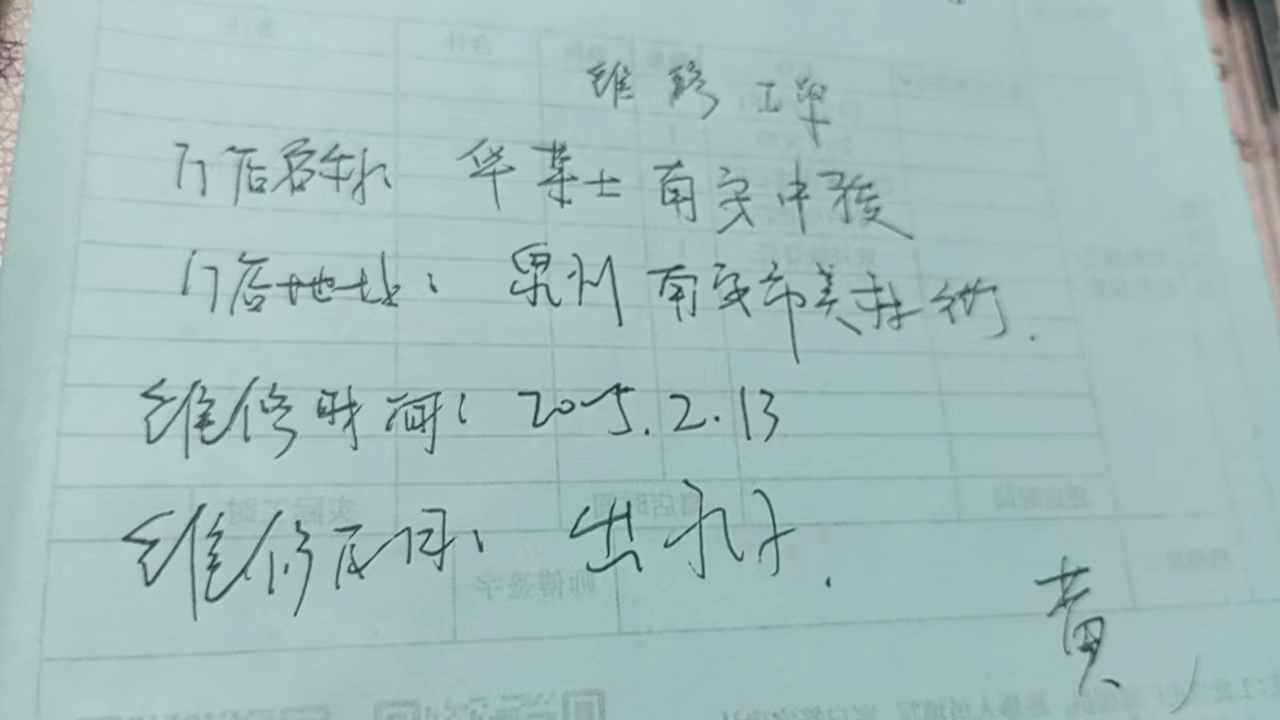 维修工单
门店名称: 华莱士南安中骏
门店地址: 泉州南安市美林街.
维修时间: 2025.2.13
维修反馈: 出
黄